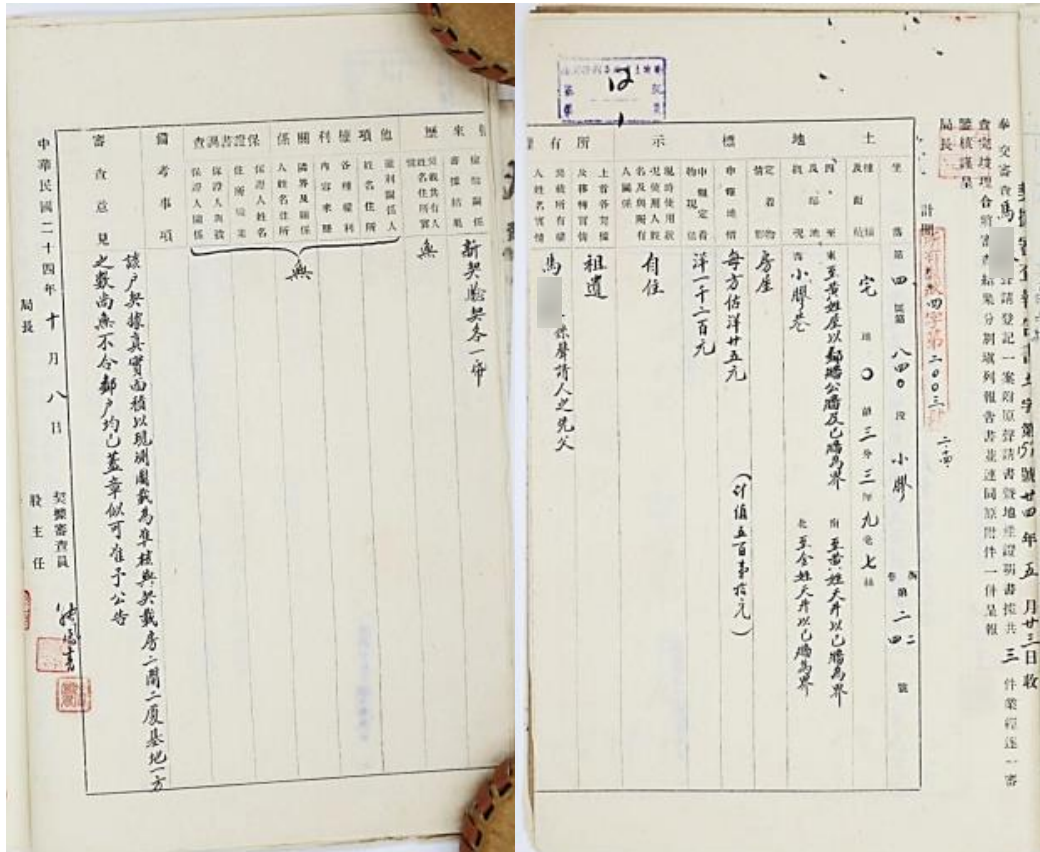 契據審查報告書土字第51號廿四年五月廿三日收
奉 交審查馬 聲請登記一案附原聲請書暨地產證明書據共三件業經逐一審
查完竣理合將審查結果分別填列報告書並連同原附件一併呈報
鑒核謹呈
局長
計開
所有 四字第二〇〇三
土地標示
坐落
第四區第八四〇段小膠
巷第二二四號
種類及面積
宅地〇畝三分三厘九毫七絲
四至及鄰地概況
東至黃姓屋以鄰墻公牆及己牆為界
南至黃姓天井以己牆為界
西小膠巷
北至金姓天井以己牆為界
定着物情形
房屋
申報地價
每方估洋廿五元
(計值五百 拾元)
申報定着物現值
洋一千二百元
現時使用狀況使用人姓名及與所有人關係
自住
所有權
上首各書據及移轉實情
祖遺
契載所有權人姓名實情
馬 係聲請人之先父
來歷
審據結果
新契驗契各一帋
契載共有人姓名住所實情
無
他項權利關係
權利關係人姓名住所
各種權利內容來歷
鄰界及關係人姓名住所
保證書調查
保證人姓名
住所職業
保證人與被保證人關係
無
備考事項
審查意見
該户契據真實面積以現測圖載為準核與契載房二間二厦基地一方
之數尚無不合鄰户均已蓋章似可准予公告
中華民國二十四年十月八日
契據審查員
股主任
局長